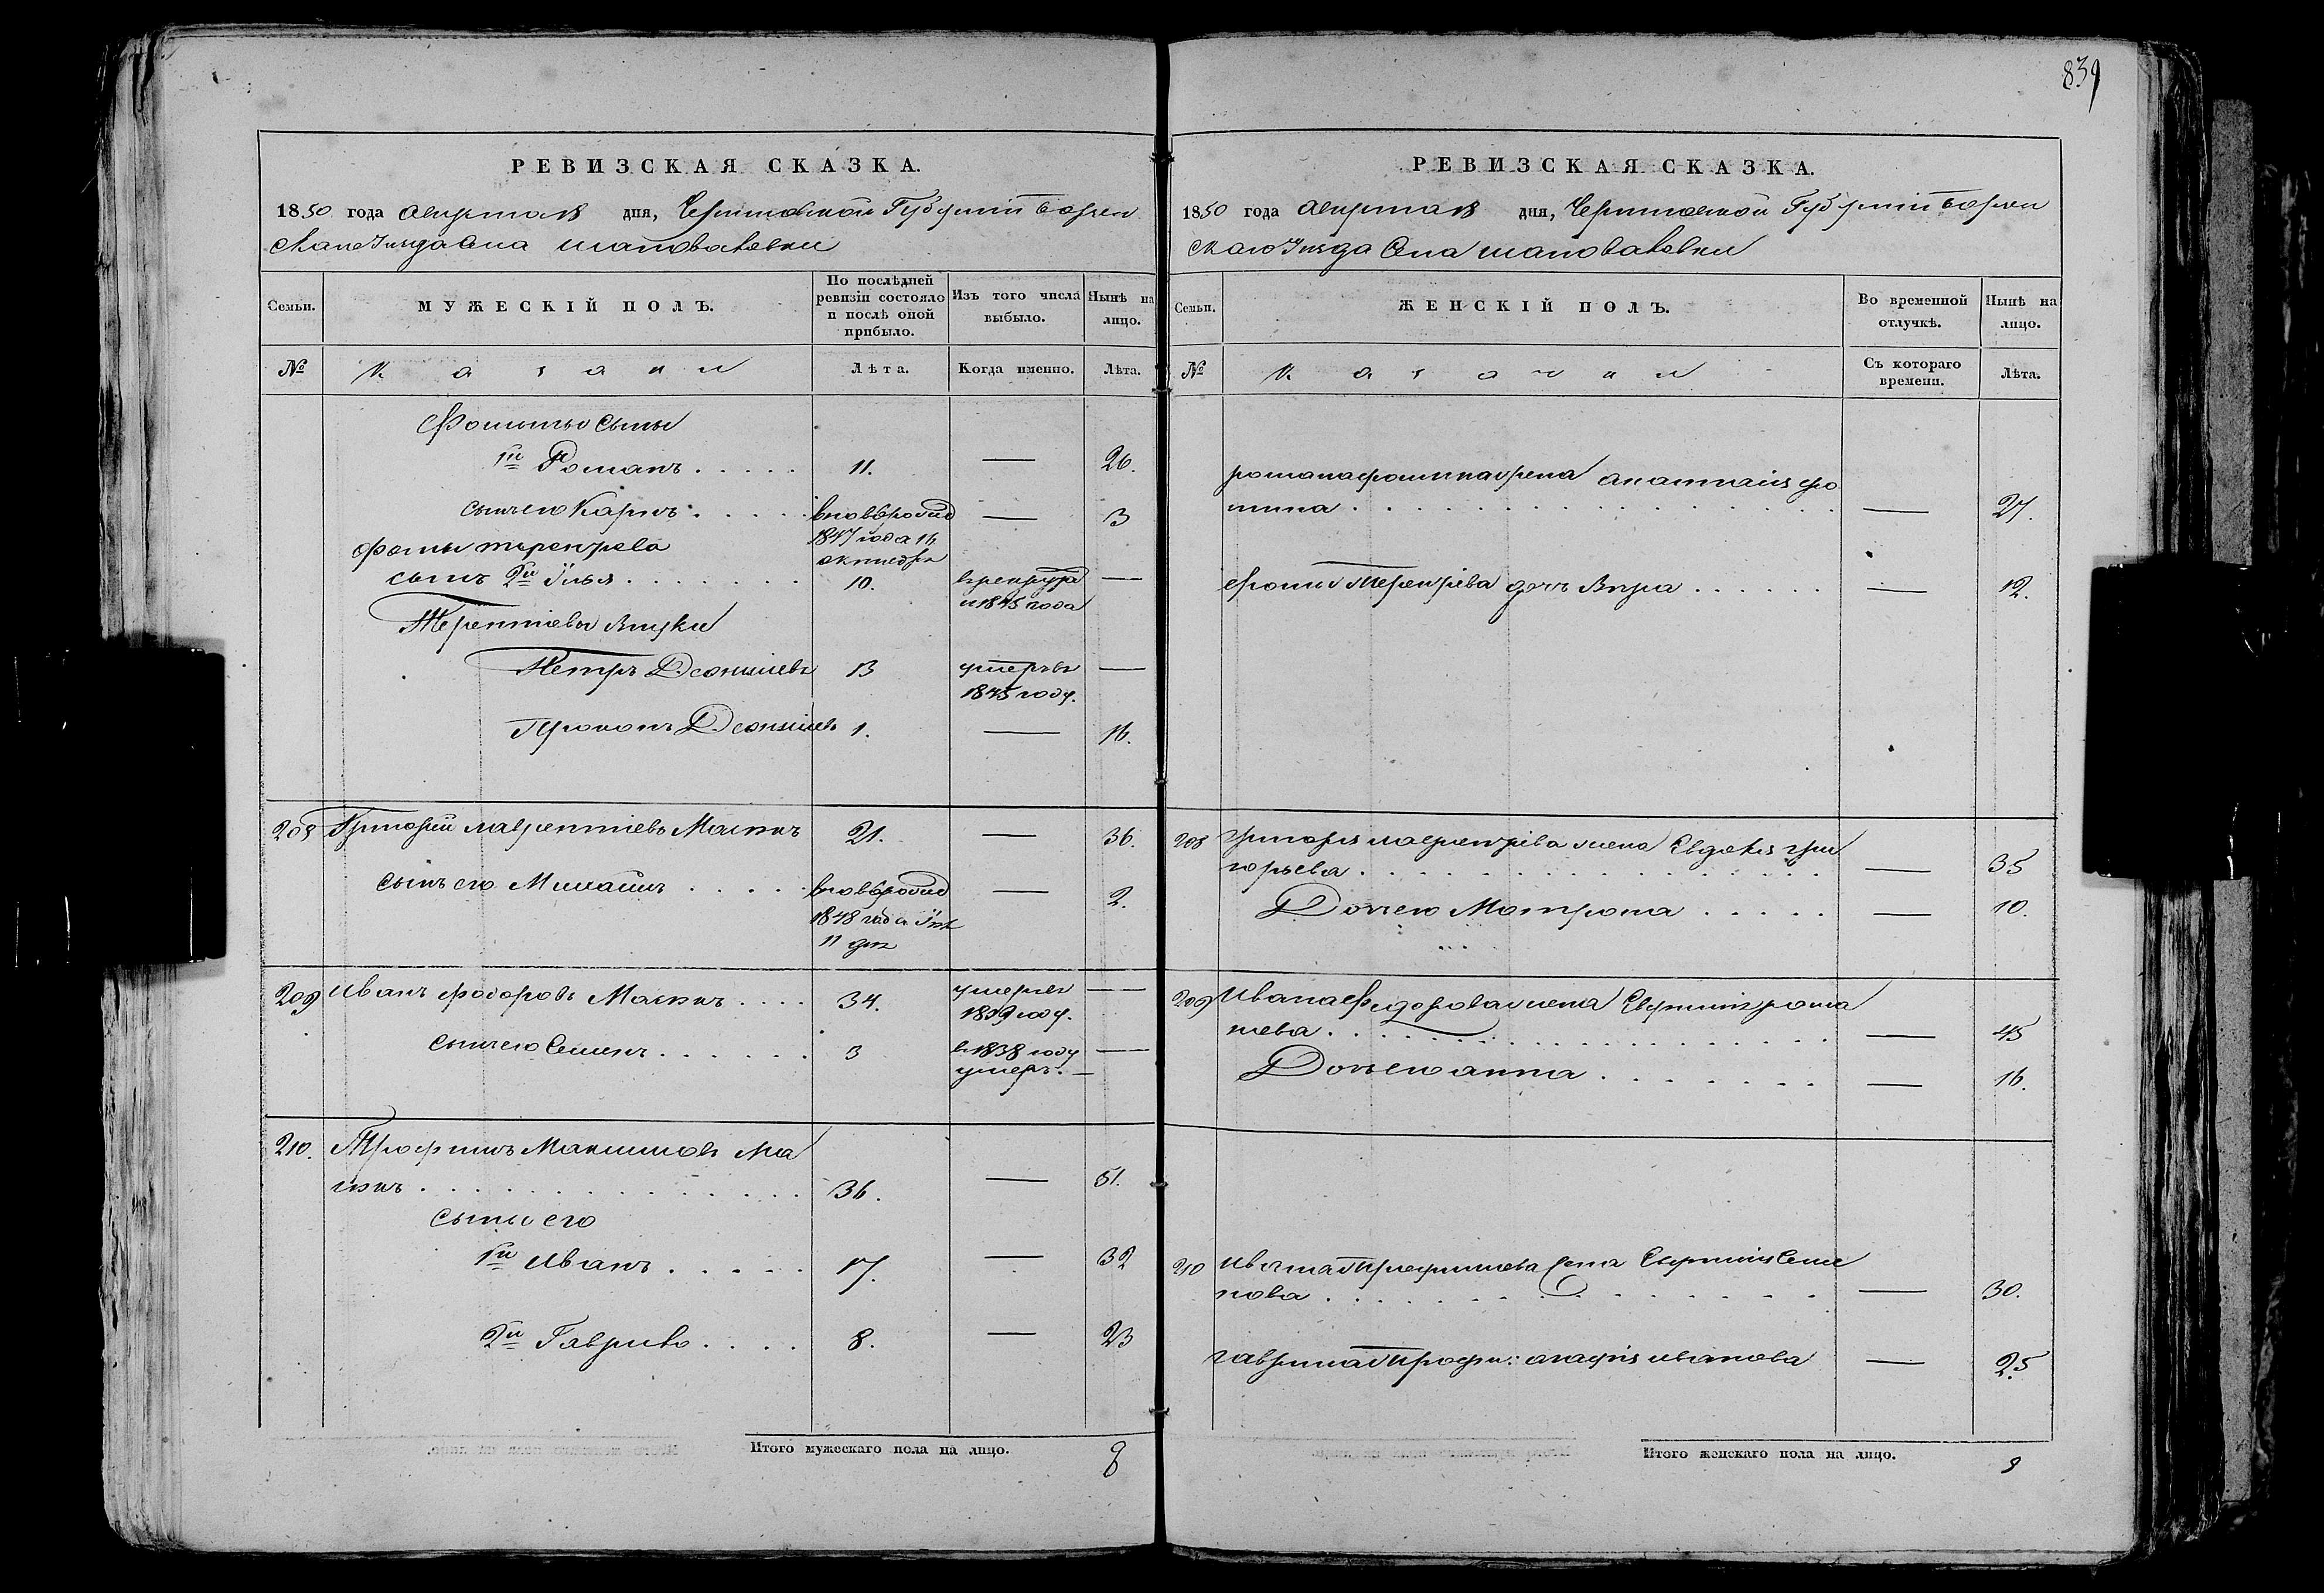 839
РЕВИЗСКАЯ СКАЗКА.
1850 года августа 18 дня, Черниговской Губерніи борзен
скаго Уезда Села шаповаловки
Семьи.
МУЖЕСКІЙ ПОЛЪ.
По послѣдней ревизіи состояло и послѣ оной прибыло.
Изъ того числа выбыло.
Нынѣ на лицо.
№
Казаки
Лѣта.
Когда именно.
Лѣта.
Фомины сыны
1й Романъ . . . . . 11. — 26.
сынъ его Карпъ . . . . вновьрожд — 3
1847 года 16
октября
Фомы терентьева
сынъ 2й Илья . . . . . . . 10. врекрута —
1845 года
Терентіевы внуки
Петръ 13 умеръ въ —
1845 году.
Прокопъ 1. — 16.
208 Григорій лаврентіевъ 21. — 36.
сынъ его . . . . . вновьрожд — 2.
1848 года
11 дня
209 Иванъ федоровъ . . . . 34. умеръ въ —
1839 году.
сынъ его Семенъ . . . . . . 3 въ 1838 году —
умеръ. —
210. Трофимъ Максимовъ
. . . . . . . . . . . . . . 36. — 51.
сыны его
1й Иванъ . . . . . 17. — 32
2й Гаврило . . . . 8. — 23
Итого мужескаго пола на лицо. 8
РЕВИЗСКАЯ СКАЗКА.
1850 года августа 18 дня, Черниговской Губерніи борзен
скаго Уезда Села шаповаловки
Семьи.
ЖЕНСКІЙ ПОЛЪ.
Во временной отлучкѣ.
Нынѣ на лицо.
№
Казачки
Съ котораго времени.
Лѣта.
романа фомина жена анастасія фо
мина . . . . . . . . . . . . . . . . . — 27.
фомы терентіева дочь Вѣра . . . . . . — 12.
208 григорія лаврентіева жена Евдокія гри
горьева . . . . . . . . . . . . . . . . . — 35
Дочь его Матрона . . . . . — 10.
209 Ивана Федорова жена Евфимія рома
нова . . . . . . . . . . . . . . . . . . — 45
Дочь его анна . . . . . . . — 16.
210 ивана трофимова жена Евфимія Семе
нова . . . . . . . . . . . . . . . — 30.
гаврила трофи: агафія иванова — 25
Итого женскаго пола на лицо. 8